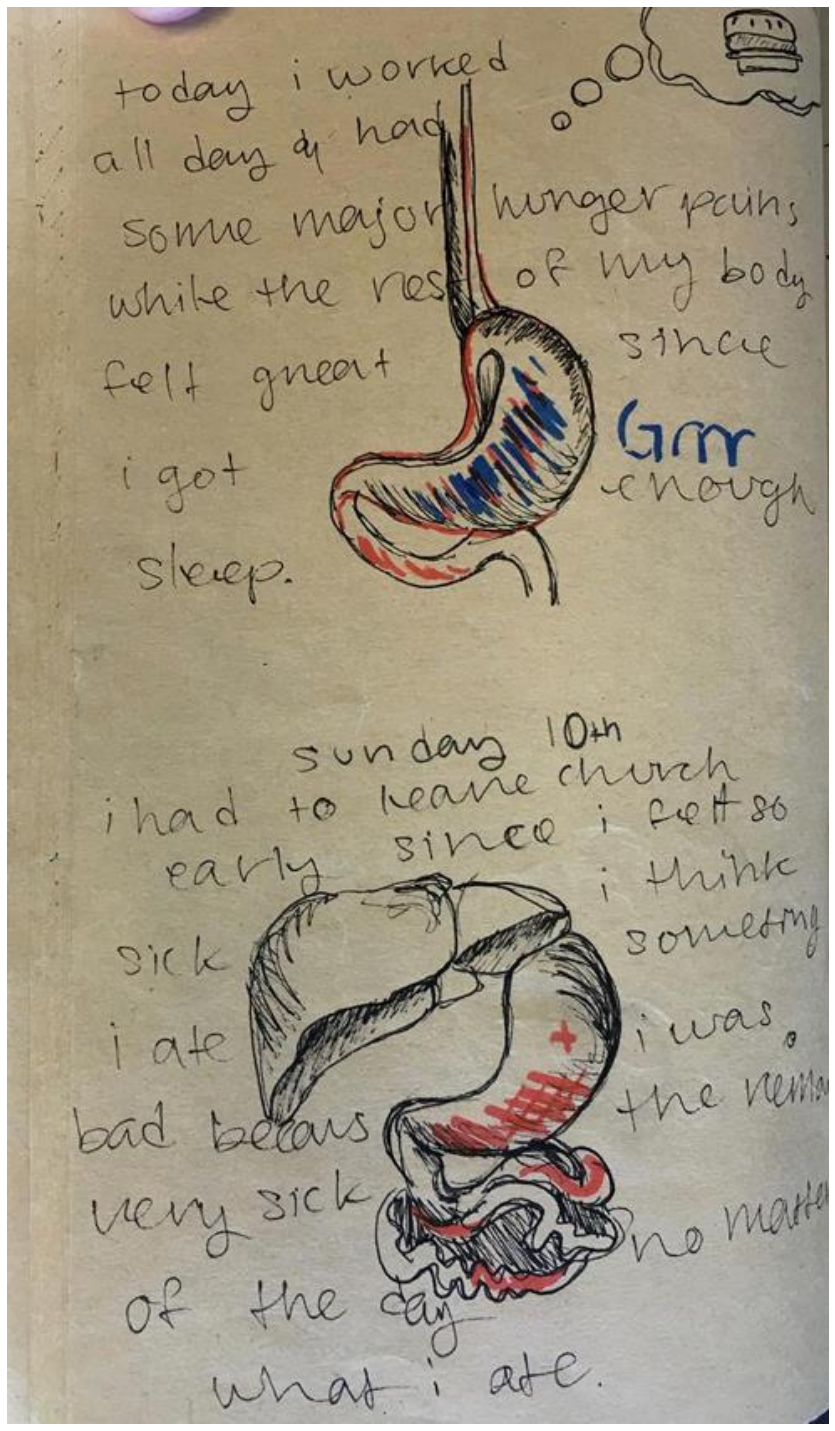 today i worked
all day & had
some major hunger pains
while the rest of my body
felt great since
Grrr
i got enough
sleep.
sunday 10th
i had to leave church
early since i felt so
sick i think
i ate someting
bad becaus i was.
very sick the
of the day no
what i ate.